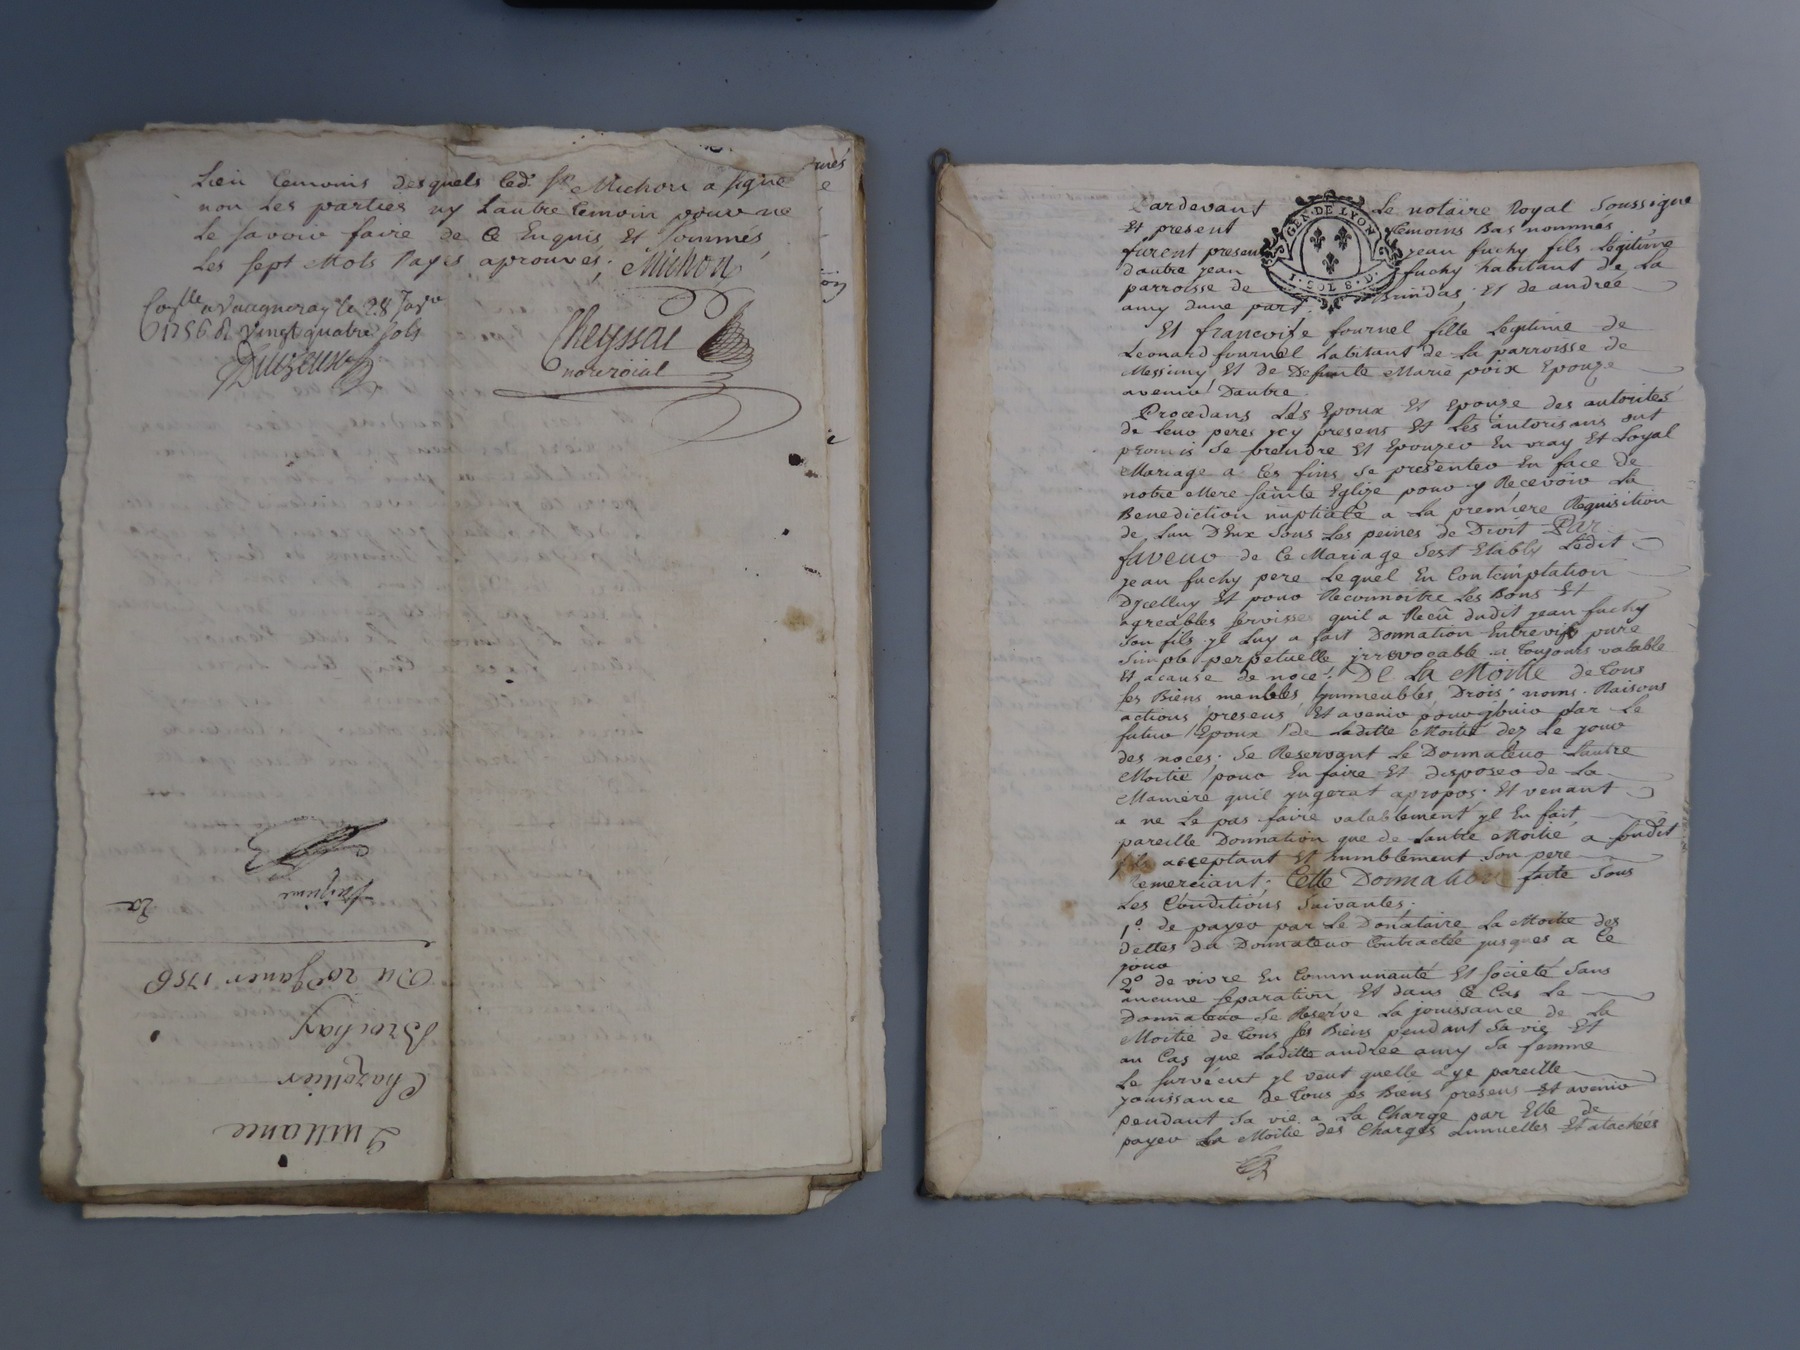 Lieu temoins desquels led. Sr. Michon a signé
non Les parties ny Lautre temoin pour ne
Le savoir faire de Ce Enquis Et sommés
Les sept Mots Rayés aprouvés; Michon
Conlle a Vaugneray le 28 Janv
1756 R. vingt quatre sols
Cheyssac
not. roial
Du 20e Janvier 1756
Brochay
Chazottier
Quittance
GEN. DE LYON
1. SOL 8. D.
Pardevant Le notaire Royal soussigné
Et present temoins Bas nommés
furent present jean fuchy fils Legitime
dautre jean fuchy habitant de La
parroisse de Brindas; Et de andrée
amy dune part.
Et francoise fournel fille Legitime de
Leonard fournel habitant de La parroisse de
Messimy Et de Defunte Marie poix Epouze
avenir Dautre.
Procedans Les Epoux Et Epouze des autorités
de Leur peres jcy presens Et Les autorisans ont
promis se prendre Et Epouzer En vray Et Loyal
Mariage a ces fins se presenter En face de
notre Mere sainte Eglize pour y Recevoir La
Benediction nuptiale a La premiere Requisition
de Lun DEux sous Les peines de Droit Par
faveur de Ce Mariage sest Etably Ledit
jean fuchy pere Lequel En Contemplation
Dycelluy Et pour Reconnoitre Les Bons Et
agreables services quil a Reçu dudit jean fuchy
son fils yl Luy a fait Donnation Entrevifs pure
simple perpetuelle jrrevocable a toujours valable
Et acause de noce; De La Moitié de tous
ses Biens meubles Immeubles Drois noms Raisons
actions presens Et avenir pour jouir par Le
futur Epoux de Laditte Moitié dez Le jour
des noces; se Reservant Le Donnateur Lautre
Moitié pour En faire Et disposer de La
Maniere quil jugerat apropos; Et venant
a ne Le pas faire valablement yl En fait
pareille Donnation que de Lautre Moitié a sondit
fils acceptant Et humblement son pere
Remerciant; Cette Donnation faite sous
Les Conditions suivantes.
1º. de payer par Le Donataire La Moitié des
dettes du Donnateur Contractée jusques a Ce
jour
2º de vivre En Communauté Et societé sans
aucune separation Et dans Ce Cas Le
Donnateur se Reserve La jouissance de La
Moitié de tous ses Biens pendant sa vie Et
au Cas que Laditte andrée amy sa femme
Le survécut yl veut quelle aye pareille
jouissance de tous ses Biens presens Et avenir
pendant sa vie a La Charge par Elle de
payer La Moitié des Charges annuelles Et atachées